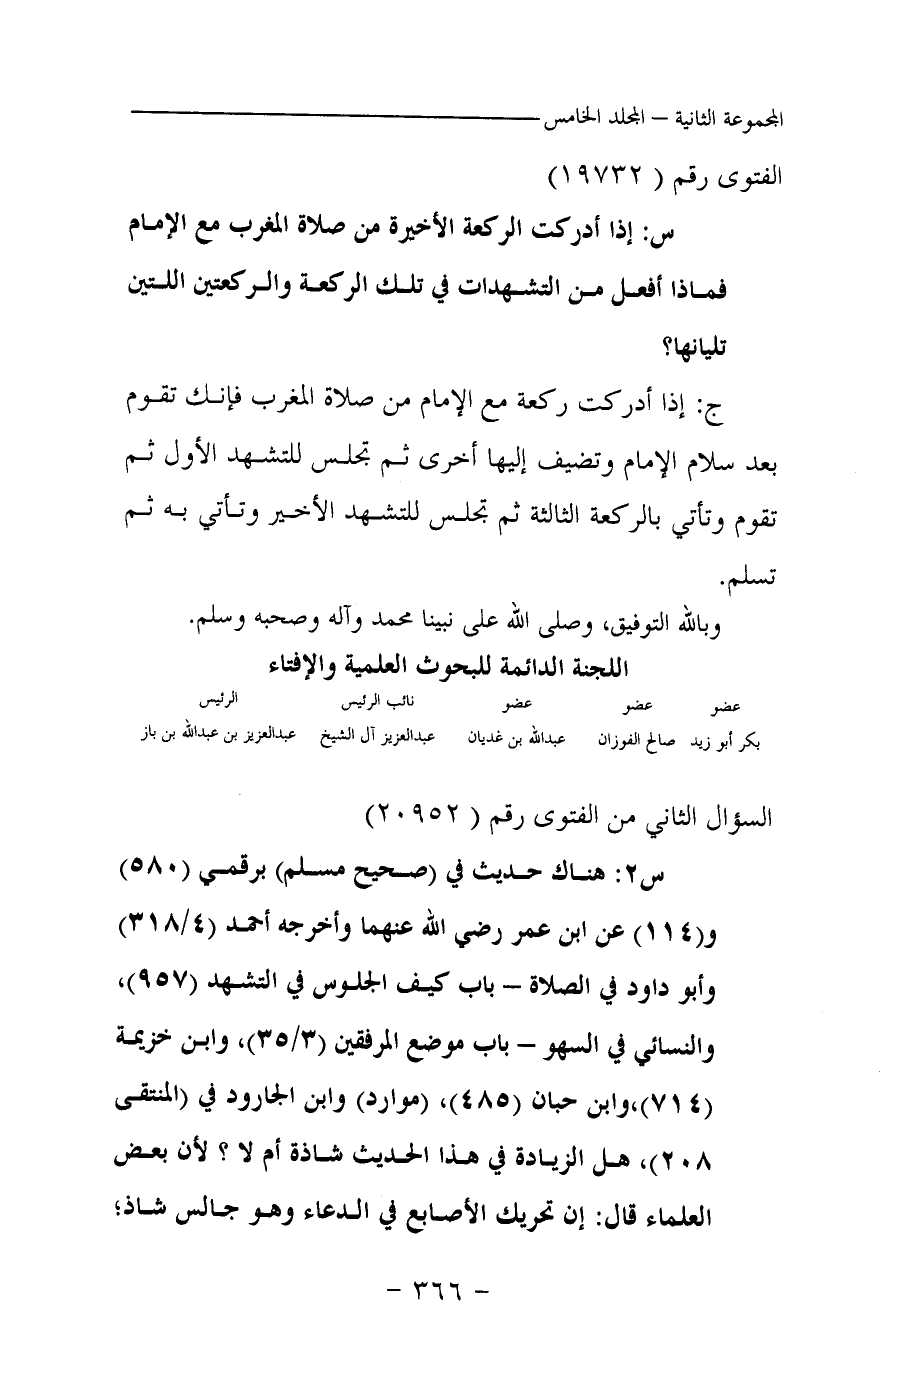 المجموعة الثانية – المجلد الخامس
الفتوى رقم ( ١٩٧٣٢)
س: إذا أدركت الركعة الأخيرة من صلاة المغرب مع الإمام
فماذا أفعل من التشهدات في تلك الركعة والركعتين اللتين
تليانها؟
ج: إذا أدركت ركعة مع الإمام من صلاة المغرب فإنك تقوم
بعد سلام الإمام وتضيف إليها أخرى ثم تجلس للتشهد الأول ثم
تقوم وتأتي بالركعة الثالثة ثم تجلس للتشهد الأخير وتأتي به ثم
تسلم.
وبالله التوفيق، وصلى الله على نبينا محمد وآله وصحبه وسلم.
اللجنة الدائمة للبحوث العلمية والإفتاء
عضو عضو عضو نائب الرئيس الرئيس
بكر أبو زيد صالح الفوزان عبدالله بن غديان عبدالعزيز آل الشيخ عبدالعزيز بن عبدالله بن باز
السؤال الثاني من الفتوى رقم ( ٢٠٩٥٢)
س٢: هناك حديث في (صحيح مسلم) برقمي (٥٨٠)
و(١١٤) عن ابن عمر رضي الله عنهما وأخرجه أحمد (٣١٨/٤)
وأبو داود في الصلاة – باب كيف الجلوس في التشهد (٩٥٧)،
والنسائي في السهو – باب موضع المرفقين (٣٥/٣)، وابن خزيمة
(٧١٤)،وابن حبان (٤٨٥)، (موارد) وابن الجارود في (المنتقى
٢٠٨)، هل الزيادة في هذا الحديث شاذة أم لا ؟ لأن بعض
العلماء قال: إن تحريك الأصابع في الدعاء وهو جالس شاذ؛
– ٣٦٦ –